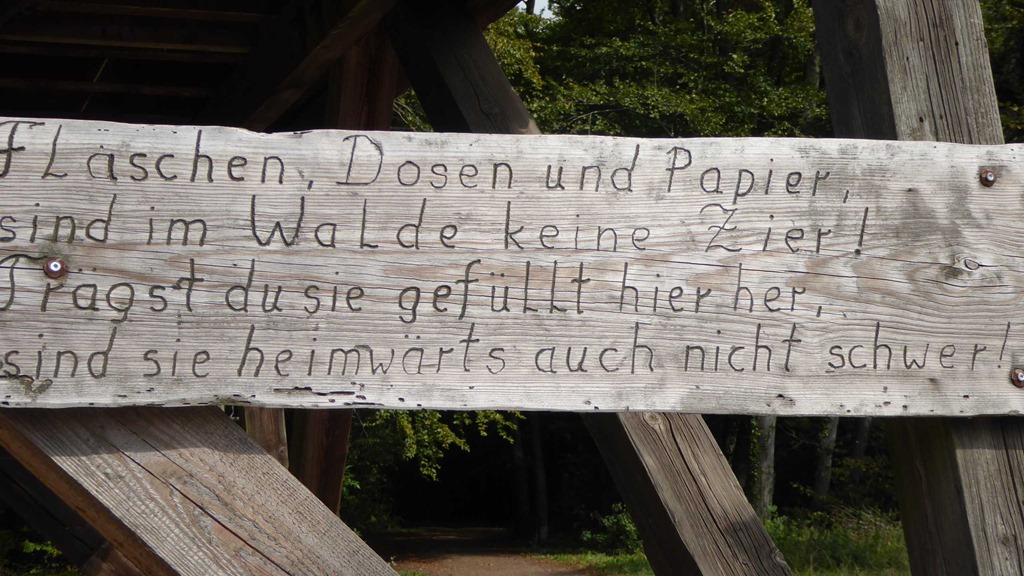 Flaschen, Dosen und Papier,
sind im Walde keine Zier!
Trägst du sie gefüllt hier her,
sind sie heimwärts auch nicht schwer!